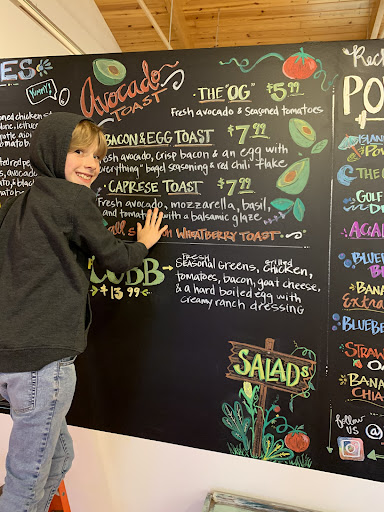 Yummy!
Avocado
TOAST
• THE "OG" $5.99
Fresh avocado & seasoned tomatoes
BACON & EGG TOAST $7.99
Fresh avocado, crisp bacon & an egg with
"everything" bagel seasoning & red chili flake
• CAPRESE TOAST $7.99
Fresh avocado, mozzarella, basil,
and tomato with a balsamic glaze
WHEATBERRY TOAST
COBB
$13.99
FRESH
SEASONAL GREENS, grilled chicken,
tomatoes, bacon, goat cheese,
& a hard boiled egg with
creamy ranch dressing
SALADS
PO
ISLAND
POW
THE
GULF
DOL
ACAI
BLUEB
BAN
BANA
Extra
BLUEB
STRAW
OA
BANAN
CHIA
follow
US @